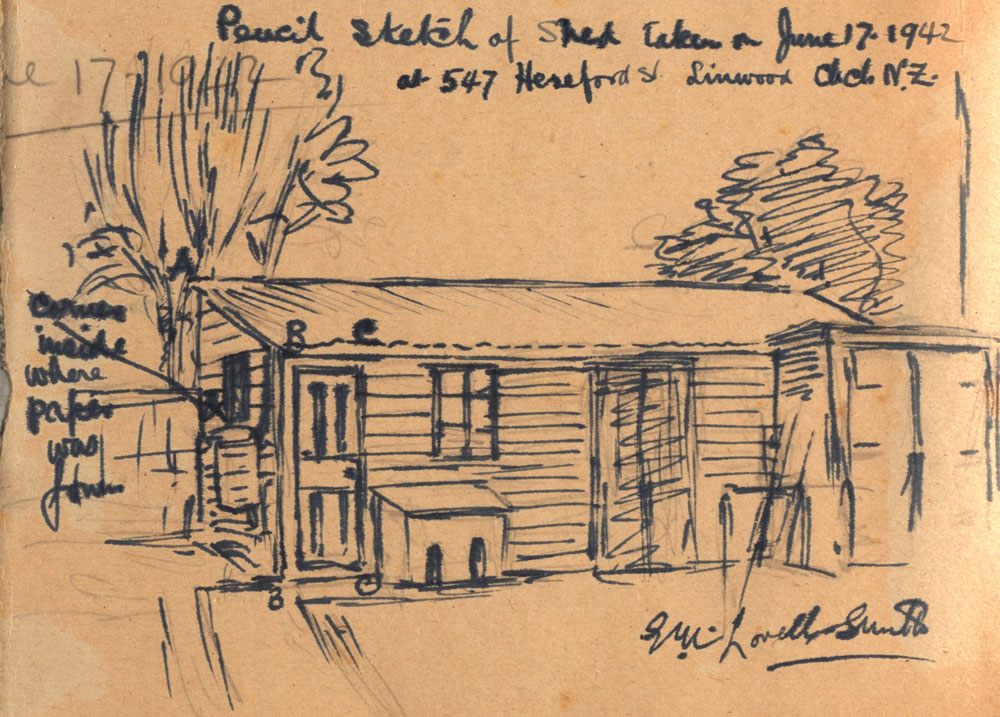 Pencil sketch of Shed taken on June 17-1942
at 547 Hereford St Linwood Chch N.Z.
e 17-1942
A
corner
inside
where
paper
was
found
B C
B C
Lovell-Smith